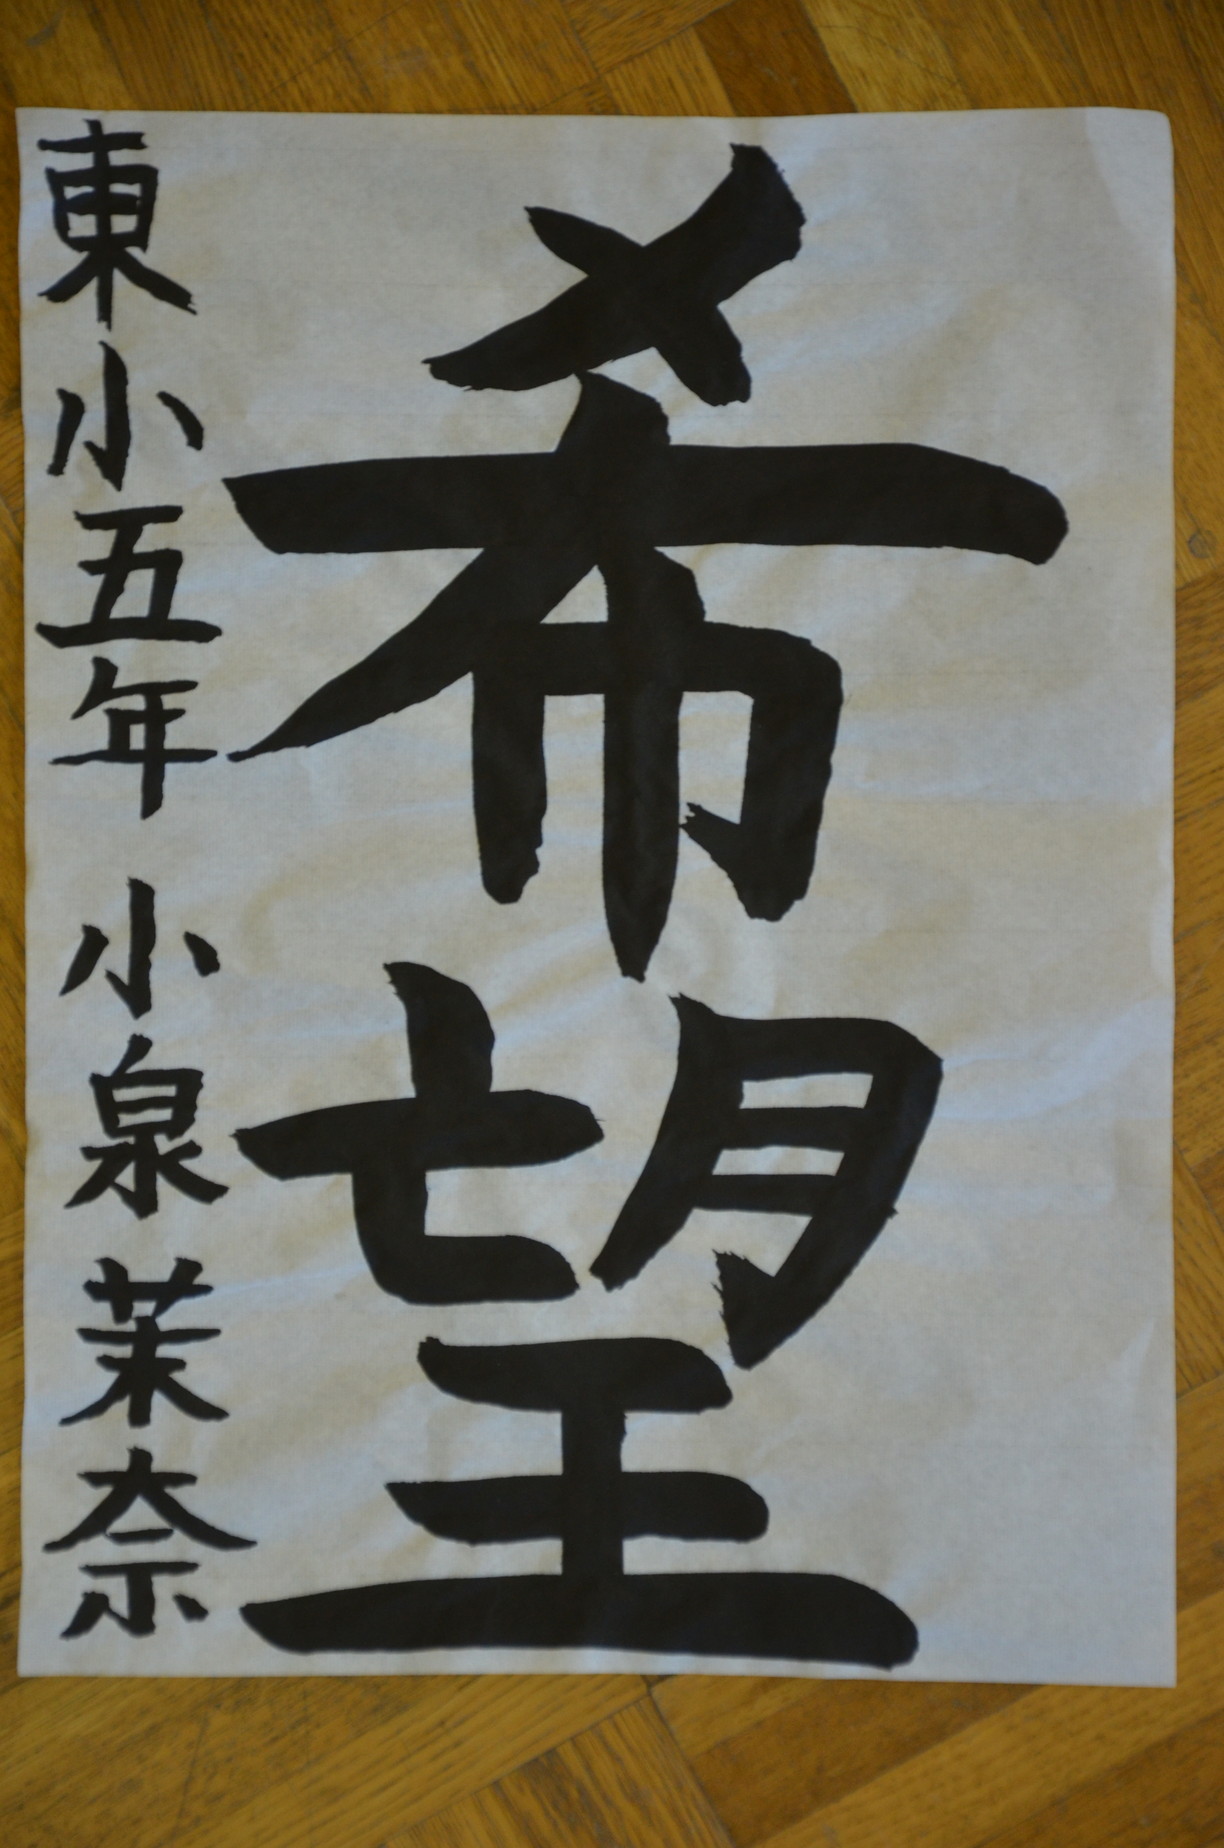 希望
東小五年 小泉茉奈